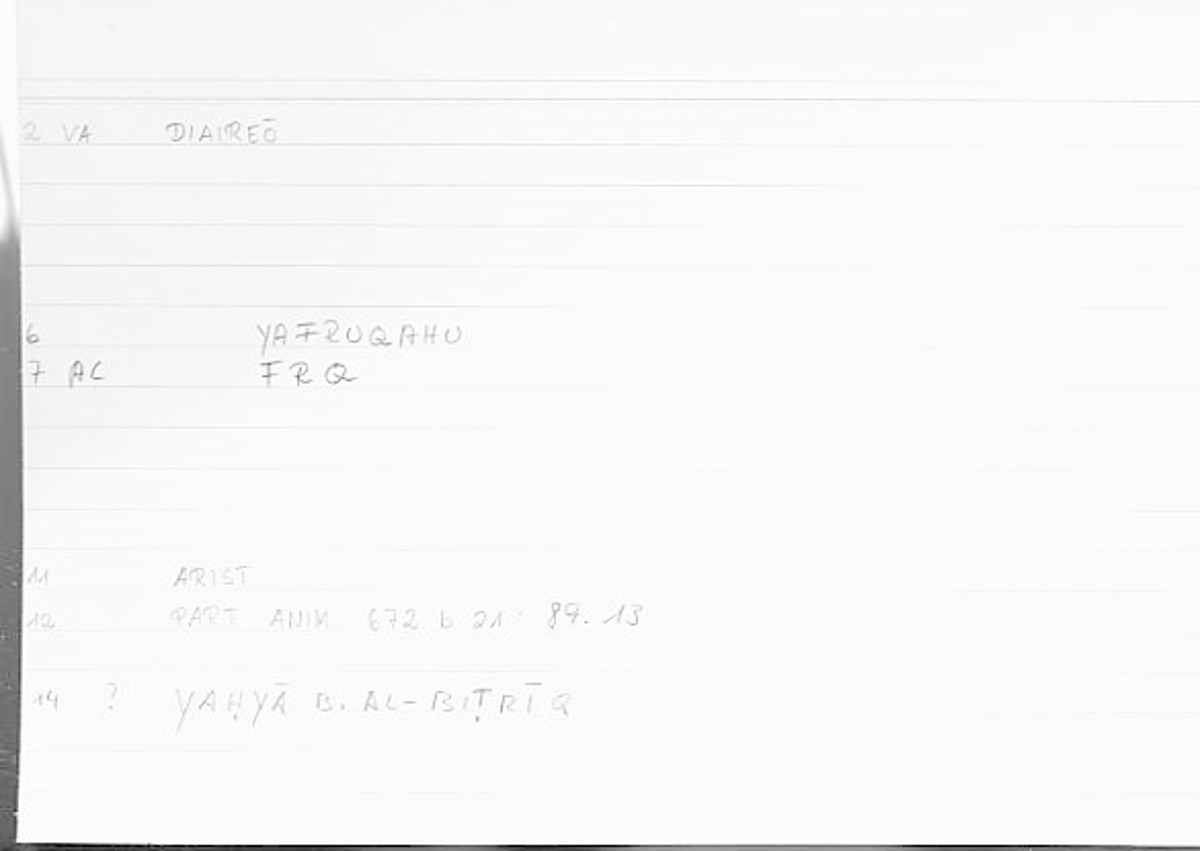 2 VA DIAIREŌ
6 YAFRUQAHU
7 AC FRQ
11 ARIST
12 PART ANIM 672 b 21: 89.13
14 ? YAḤYĀ B. AL-BIṬRĪQ